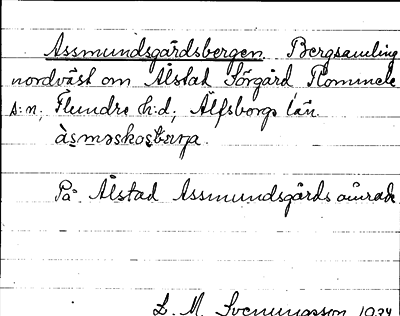 Assmundsgårdsbergen. Bergsamling
nordväst om Ålstad Sörgård Flommele
s:n; Flundre h:d; Älfsborgs län.
àsməskosbærja.
På Ålstad Assmundsgårds område
L. M. Svenungsson 1924